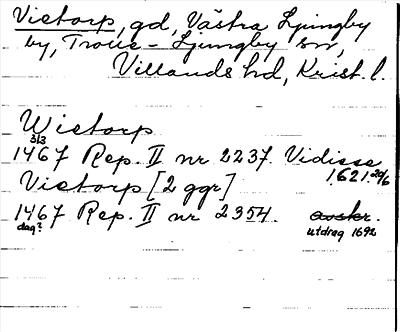 Vietorp, gd, Västra Ljungby
by, Trolle-Ljungby sn,
Villands hd, Krist. l.
Wietorp
1467 3/3 Rep. II nr 2237. Vidisse
1621 20/6
Vietorp [2 ggr]
1467 Rep. II nr 2354. avskr.
dag? utdrag 1692